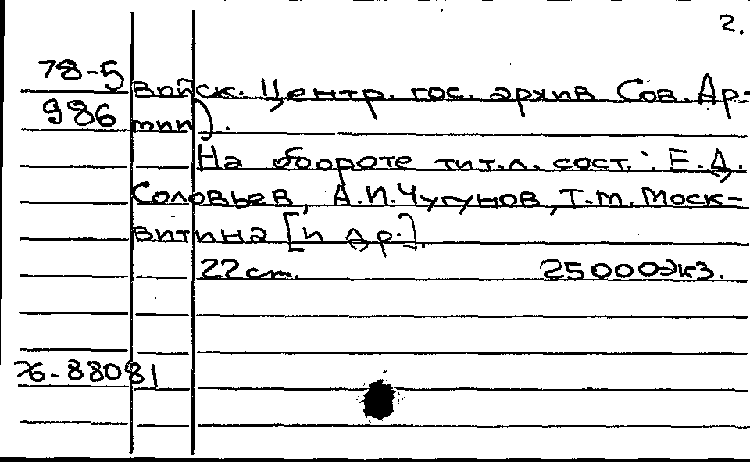 2.
78-5 войск. Центр. гос. архив Сов. Ар-
986 мии).
На обороте тит.л. сост.: Е.Д.
Соловьев, А.И.Чугунов, Т.М. Моск-
витина [и др.].
22 см. 25000экз.
76-88081